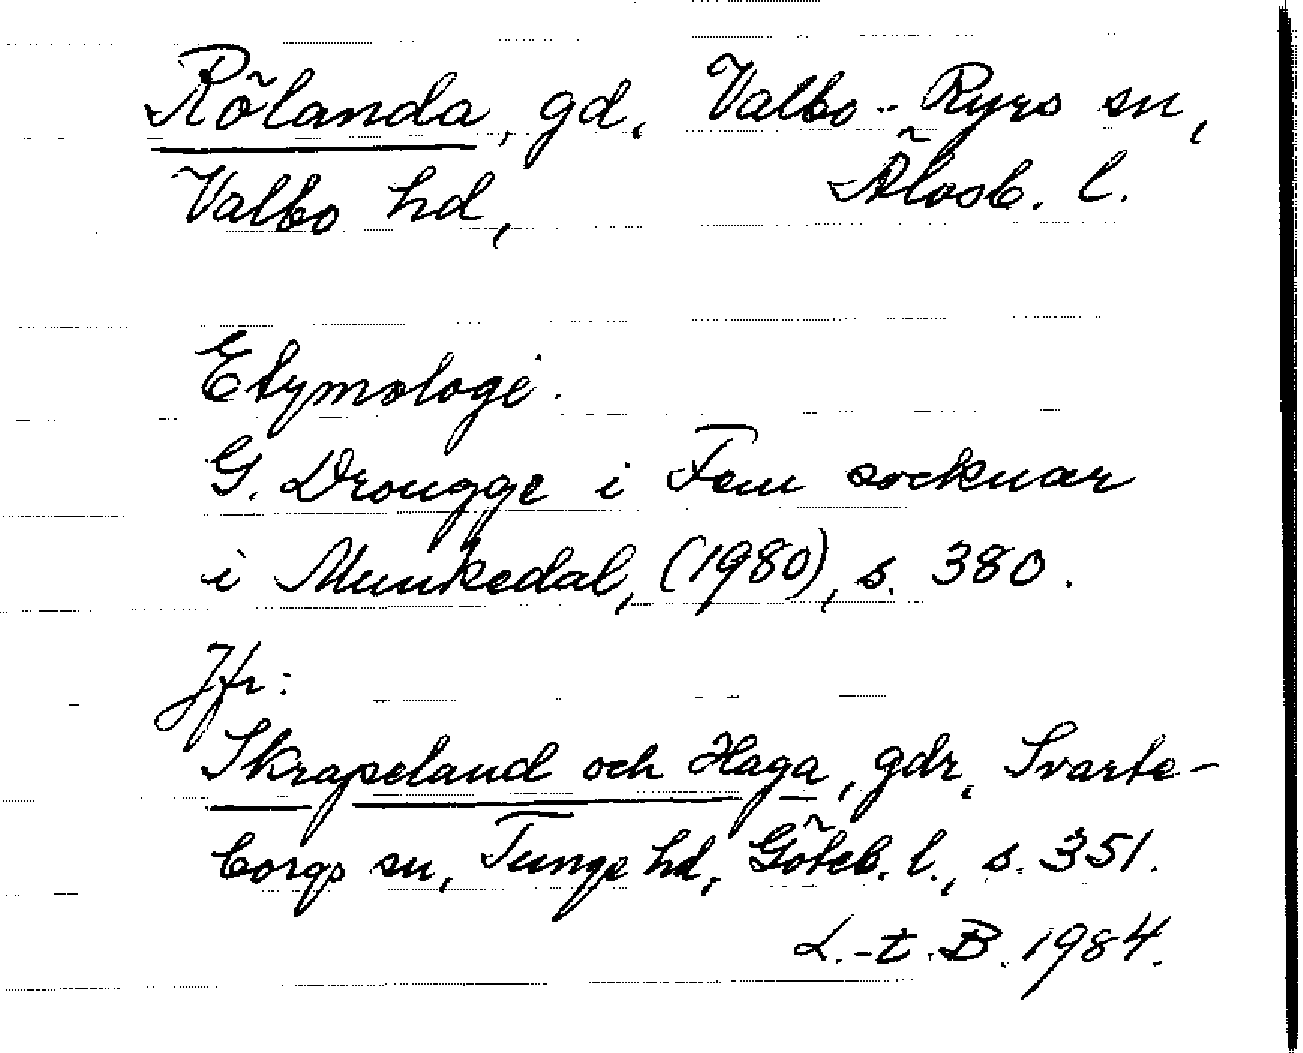 Rölanda, gd, Valbo-Ryrs sn,
Valbo hd, Älvsb. l.
Etymologi.
G. Drougge i Fem socknar
i Munkedal, (1980), s. 380.
Jfr:
Skrapeland och Haga, gdr, Svarte-
borgs sn, Tunge hd, Göteb. l., s. 351.
L.-t. B. 1984.